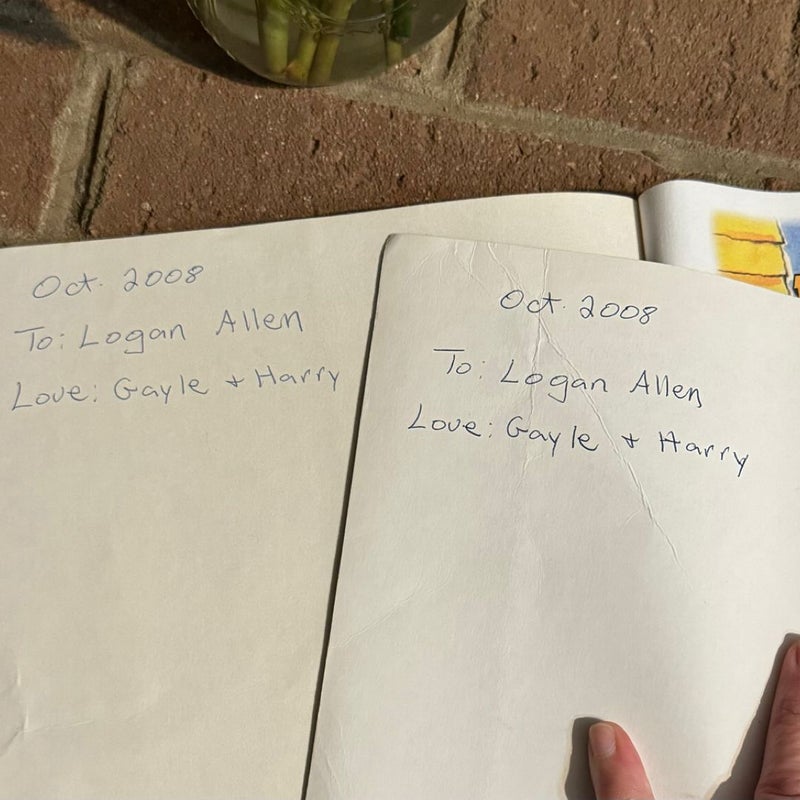 Oct. 2008
To: Logan Allen
Love: Gayle + Harry
Oct. 2008
To: Logan Allen
Love: Gayle + Harry